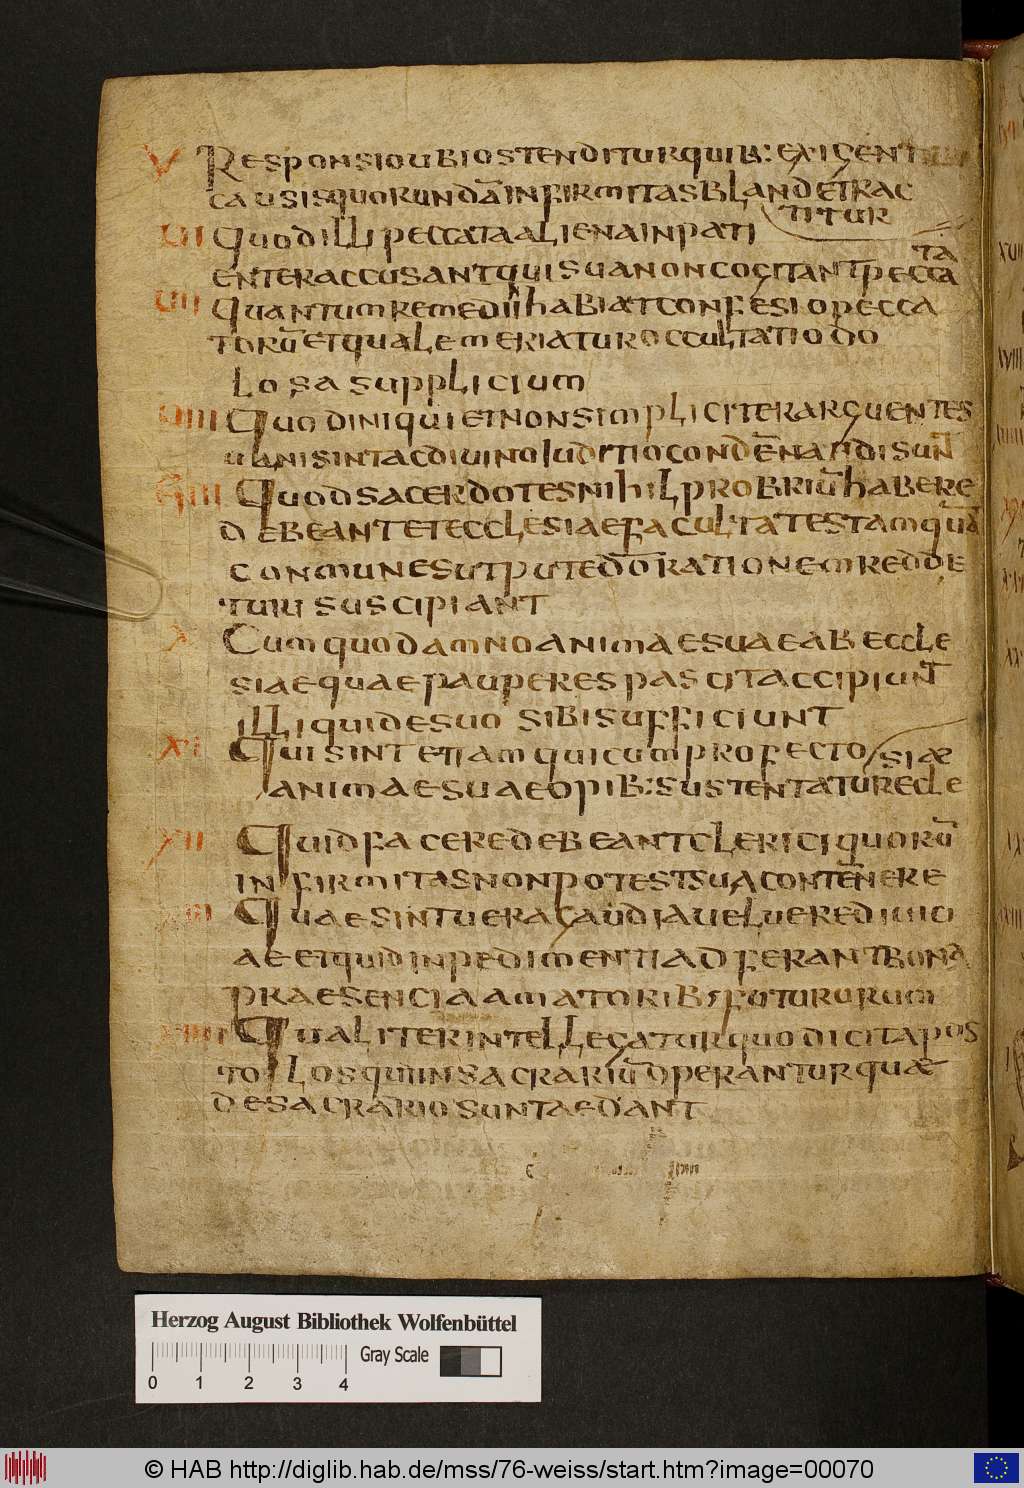 V RESPONSIO UBI OSTENDITUR QUIB: EXIGENTIBUS
CAUSIS QUORUNDĀ INFIRMITAS BLANDE TRAC
TITUR
VI QUOD ILLI PECCATA ALIENA INPATI
TA
ENTER ACCUSANT QUI SUA NON COGITANT PECCA
VII QUANTUM REMEDII HABIAT CONFESIO PECCA
TORŪ ET QUALEM ERIATUR OCCULTATIO DO
LOSA SUPPLICIUM
VIII QUOD INIQUI ET NON SIMPLICITER ARGUENTES
UANI SINT AC DIUINO IUDITIO CONDĒNATI DI SUNT
VIIII QUOD SACERDOTES NIHIL PROBRIŪ HABERE
DEBEANT ET ECCLESIAE FACULTATES TAMQUĀ
CONMUNES UT PUTE DŌ RATIONEM REDDE
TURI SUSCIPIANT
X CUM QUO DAMNO ANIMAE SUAE AB ECCLE
SIAE QUAE PAUPERES PASCIT ACCIPIUNT
ILLI QUI DE SUO SIBI SUFFICIUNT
XI QUI SINT ETIAM QUI CUM PROFECTO
SIAE
ANIMAE SUAE OPIB: SUSTENTATUR ECLE
XII QUID FACERE DEBEANT CLERICI QUORŪ
INFIRMITAS NON POTEST SUA CONTĒNERE
XIII QUAE SINT UERA GAUDIA UEL UERE DIUICI
AE ET QUID INPEDIMENTI ADFERANT BONA
PRAESENCIA AMATORIB; FUTURURUM
XIIII QUALITER INTELLEGATUR QUO DICIT APOS
TOLLOS QUI IN SACRARIŪ OPERANTUR QUAE
DE SACRARIO SUNT AEDANT
Herzog August Bibliothek Wolfenbüttel
Gray Scale
0 1 2 3 4
© HAB http://diglib.hab.de/mss/76-weiss/start.htm?image=00070